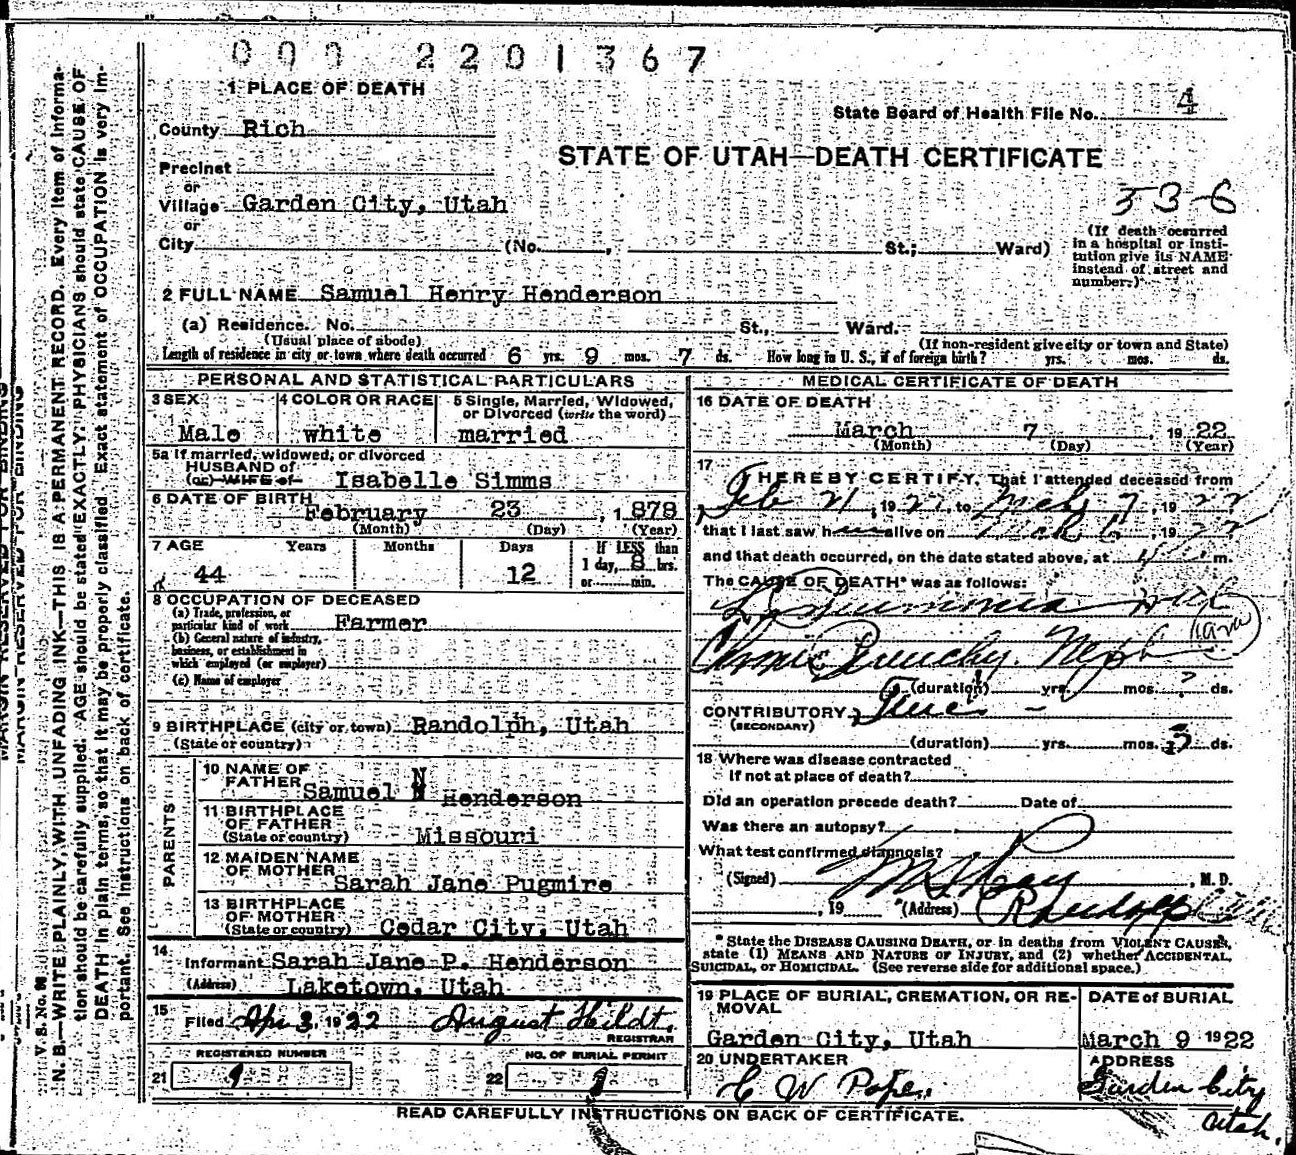 000 2201367
1 PLACE OF DEATH
State Board of Health File No. 4
County Rich
STATE OF UTAH—DEATH CERTIFICATE
Precinct
or
Village Garden City, Utah
53-6
or
City (No. , St.; Ward)
(If death occurred in a hospital or institution give its NAME instead of street and number.)
2 FULL NAME Samuel Henry Henderson
(a) Residence. No. St., Ward.
(Usual place of abode) (If non-resident give city or town and State)
Length of residence in city or town where death occurred 6 yrs. 9 mos. 7 ds. How long in U. S., if of foreign birth? yrs. mos. ds.
PERSONAL AND STATISTICAL PARTICULARS
3 SEX 4 COLOR OR RACE 5 Single, Married, Widowed, or Divorced (write the word)
Male white married
5a If married, widowed, or divorced
HUSBAND of
(or) WIFE of Isabelle Simms
6 DATE OF BIRTH
February 23, 1878
(Month) (Day) (Year)
7 AGE Years Months Days If LESS than
44 12 1 day, 8 hrs.
or min.
8 OCCUPATION OF DECEASED
(a) Trade, profession, or
particular kind of work Farmer
(b) General nature of industry,
business, or establishment in
which employed (or employer)
(c) Name of employer
9 BIRTHPLACE (city or town) Randolph, Utah
(State or country)
PARENTS
10 NAME OF
FATHER Samuel N Henderson
11 BIRTHPLACE
OF FATHER
(State or country) Missouri
12 MAIDEN NAME
OF MOTHER
Sarah Jane Pugmire
13 BIRTHPLACE
OF MOTHER
(State or country) Cedar City, Utah
14
Informant Sarah Jane P. Henderson
(Address) Laketown, Utah
15
Filed Apr 3, 1922 August Hildt,
REGISTRAR
REGISTERED NUMBER NO. OF BURIAL PERMIT
21 9 22
MEDICAL CERTIFICATE OF DEATH
16 DATE OF DEATH
March 7, 1922
(Month) (Day) (Year)
17
I HEREBY CERTIFY, That I attended deceased from
Feb 21, 1922, to Mch 7, 1922
that I last saw h alive on Mch 6, 1922
and that death occurred, on the date stated above, at m.
The CAUSE OF DEATH* was as follows:
Chronic
(duration) yrs. mos. ds.
CONTRIBUTORY
(SECONDARY)
(duration) yrs. mos. ds.
18 Where was disease contracted
if not at place of death?
Did an operation precede death? Date of
Was there an autopsy?
What test confirmed diagnosis?
(Signed) , M. D.
, 19 (Address) Randolph Utah
* State the DISEASE CAUSING DEATH, or in deaths from VIOLENT CAUSES,
state (1) MEANS AND NATURE OF INJURY, and (2) whether ACCIDENTAL,
SUICIDAL, or HOMICIDAL. (See reverse side for additional space.)
19 PLACE OF BURIAL, CREMATION, OR RE-
MOVAL
Garden City, Utah
DATE OF BURIAL
March 9 1922
20 UNDERTAKER
C W Pope.
ADDRESS
Garden City
Utah.
READ CAREFULLY INSTRUCTIONS ON BACK OF CERTIFICATE.
MARGIN RESERVED FOR BINDING
V. S. No. 98
N. B.—WRITE PLAINLY, WITH UNFADING INK—THIS IS A PERMANENT RECORD. Every item of informa-
tion should be carefully supplied. AGE should be stated EXACTLY. PHYSICIANS should state CAUSE OF
DEATH in plain terms, so that it may be properly classified. Exact statement of OCCUPATION is very im-
portant. See instructions on back of certificate.